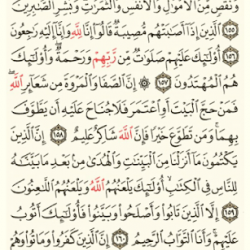 وَنَقْصٍ مِّنَ الْأَمْوَالِ وَالْأَنفُسِ وَالثَّمَرَاتِ وَبَشِّرِ الصَّابِرِينَ
١٥٥ الَّذِينَ إِذَا أَصَابَتْهُم مُّصِيبَةٌ قَالُوا إِنَّا لِلَّهِ وَإِنَّا إِلَيْهِ رَاجِعُونَ
١٥٦ أُولَٰئِكَ عَلَيْهِمْ صَلَوَاتٌ مِّن رَّبِّهِمْ وَرَحْمَةٌ وَأُولَٰئِكَ
هُمُ الْمُهْتَدُونَ ١٥٧ ۞ إِنَّ الصَّفَا وَالْمَرْوَةَ مِن شَعَائِرِ اللَّهِ
فَمَنْ حَجَّ الْبَيْتَ أَوِ اعْتَمَرَ فَلَا جُنَاحَ عَلَيْهِ أَن يَطَّوَّفَ
بِهِمَا وَمَن تَطَوَّعَ خَيْرًا فَإِنَّ اللَّهَ شَاكِرٌ عَلِيمٌ ١٥٨ إِنَّ الَّذِينَ
يَكْتُمُونَ مَا أَنزَلْنَا مِنَ الْبَيِّنَاتِ وَالْهُدَىٰ مِن بَعْدِ مَا بَيَّنَّاهُ
لِلنَّاسِ فِي الْكِتَابِ أُولَٰئِكَ يَلْعَنُهُمُ اللَّهُ وَيَلْعَنُهُمُ اللَّاعِنُونَ
١٥٩ إِلَّا الَّذِينَ تَابُوا وَأَصْلَحُوا وَبَيَّنُوا فَأُولَٰئِكَ أَتُوبُ
عَلَيْهِمْ وَأَنَا التَّوَّابُ الرَّحِيمُ ١٦٠ إِنَّ الَّذِينَ كَفَرُوا وَمَاتُوا وَهُمْ